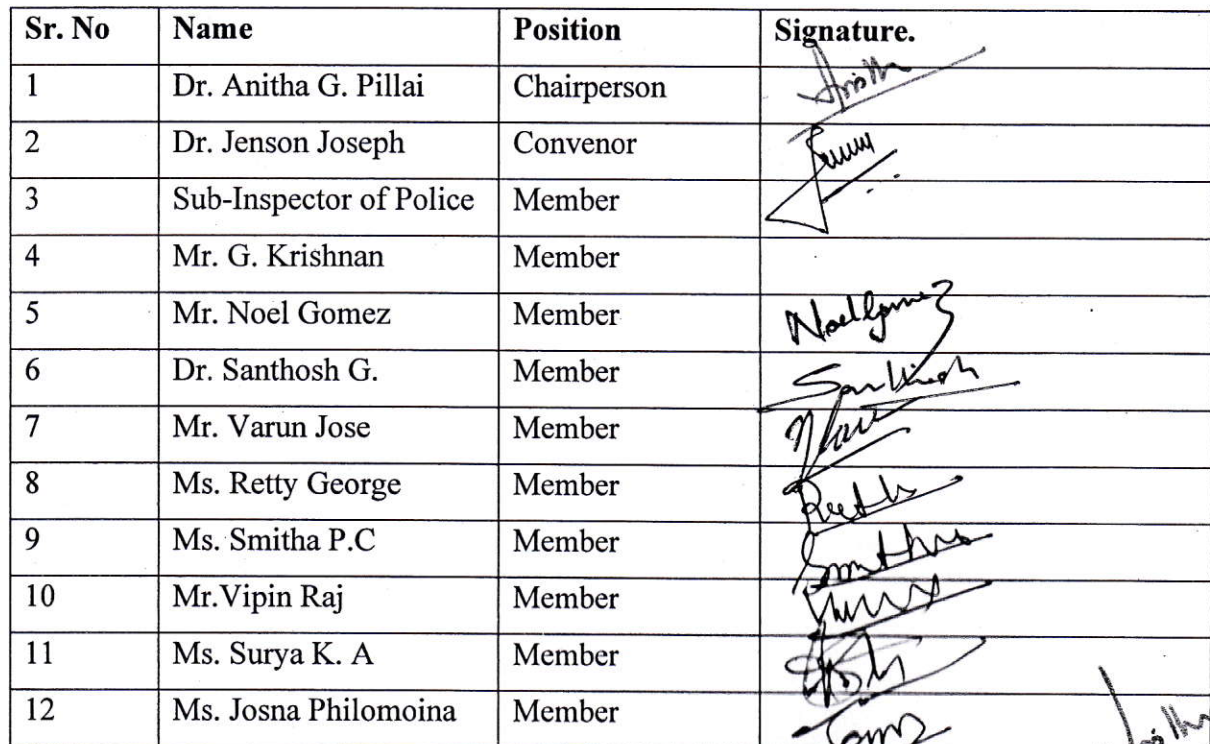 Sr. No Name Position Signature.
1 Dr. Anitha G. Pillai Chairperson Anitha
2 Dr. Jenson Joseph Convenor
3 Sub-Inspector of Police Member
4 Mr. G. Krishnan Member
5 Mr. Noel Gomez Member Noel Gomez
6 Dr. Santhosh G. Member Santhosh
7 Mr. Varun Jose Member
8 Ms. Retty George Member
9 Ms. Smitha P.C Member Smitha
10 Mr.Vipin Raj Member
11 Ms. Surya K. A Member
12 Ms. Josna Philomoina Member